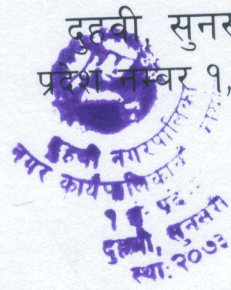 दुहवी, सुनस
प्रदेश नम्बर १,
दुहवी नगरपालिका
नगर कार्यपालिका
१ नं. प्रदे
दुहवी, सुनसरी
स्था: २०७३